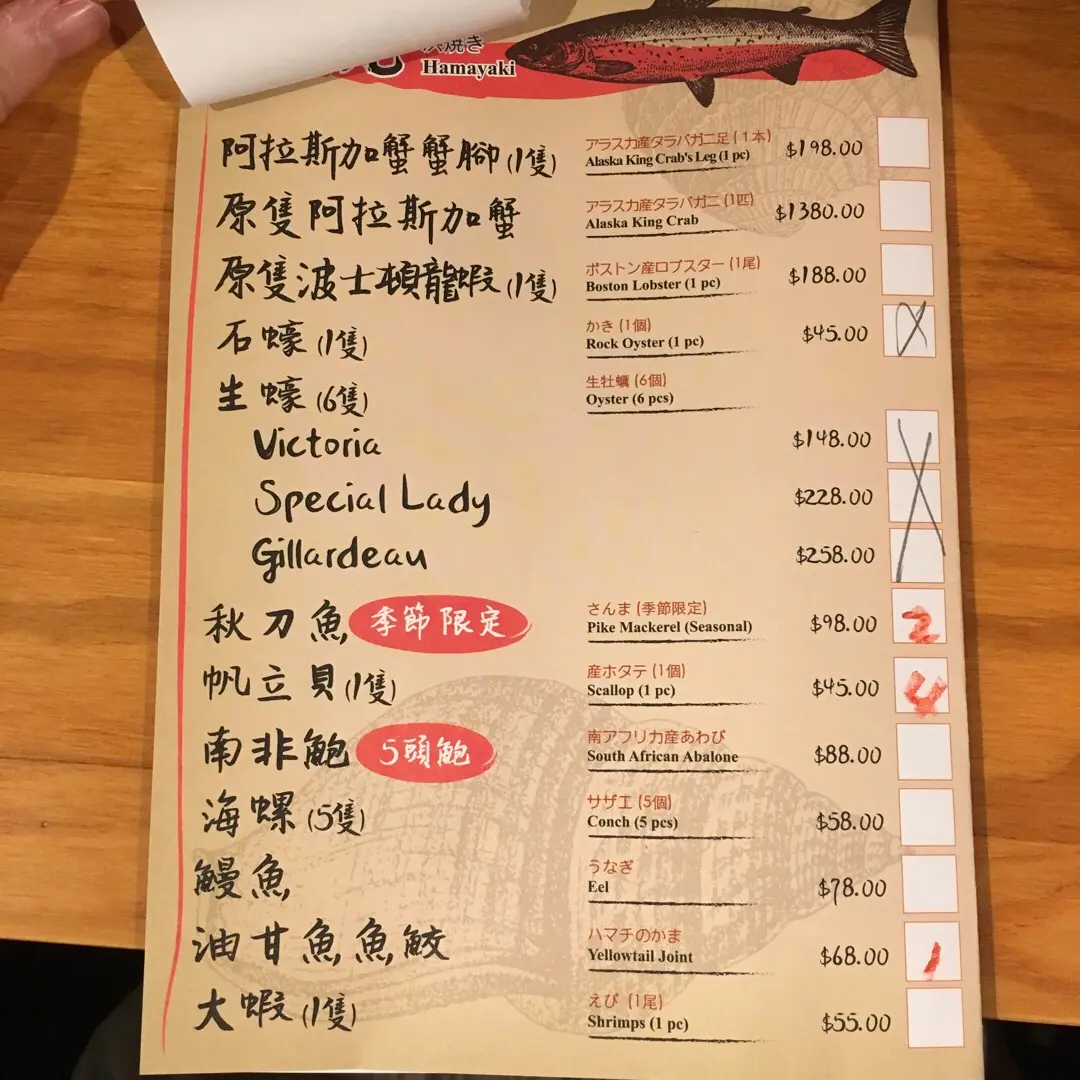 浜焼き
Hamayaki
阿拉斯加蟹蟹腳 (1隻) アラスカ産タラバガニ足 (1本) $198.00
Alaska King Crab's Leg (1 pc)
原隻阿拉斯加蟹 アラスカ産タラバガニ (1匹) $1380.00
Alaska King Crab
原隻波士頓龍蝦 (1隻) ボストン産ロブスター (1尾) $188.00
Boston Lobster (1 pc)
石蠔 (1隻) かき (1個) $45.00
Rock Oyster (1 pc)
生蠔 (6隻) 生牡蠣 (6個)
Oyster (6 pcs)
Victoria $148.00
Special Lady $228.00
Gillardeau $258.00
秋刀魚 季節限定 さんま (季節限定) $98.00 2
Pike Mackerel (Seasonal)
帆立貝 (1隻) 産ホタテ (1個) $45.00 4
Scallop (1 pc)
南非鮑 5頭鮑 南アフリカ産あわび $88.00
South African Abalone
海螺 (5隻) サザエ (5個) $58.00
Conch (5 pcs)
鰻魚 うなぎ $78.00
Eel
油甘魚魚鮫 ハマチのかま $68.00 1
Yellowtail Joint
大蝦 (1隻) えび (1尾) $55.00
Shrimps (1 pc)